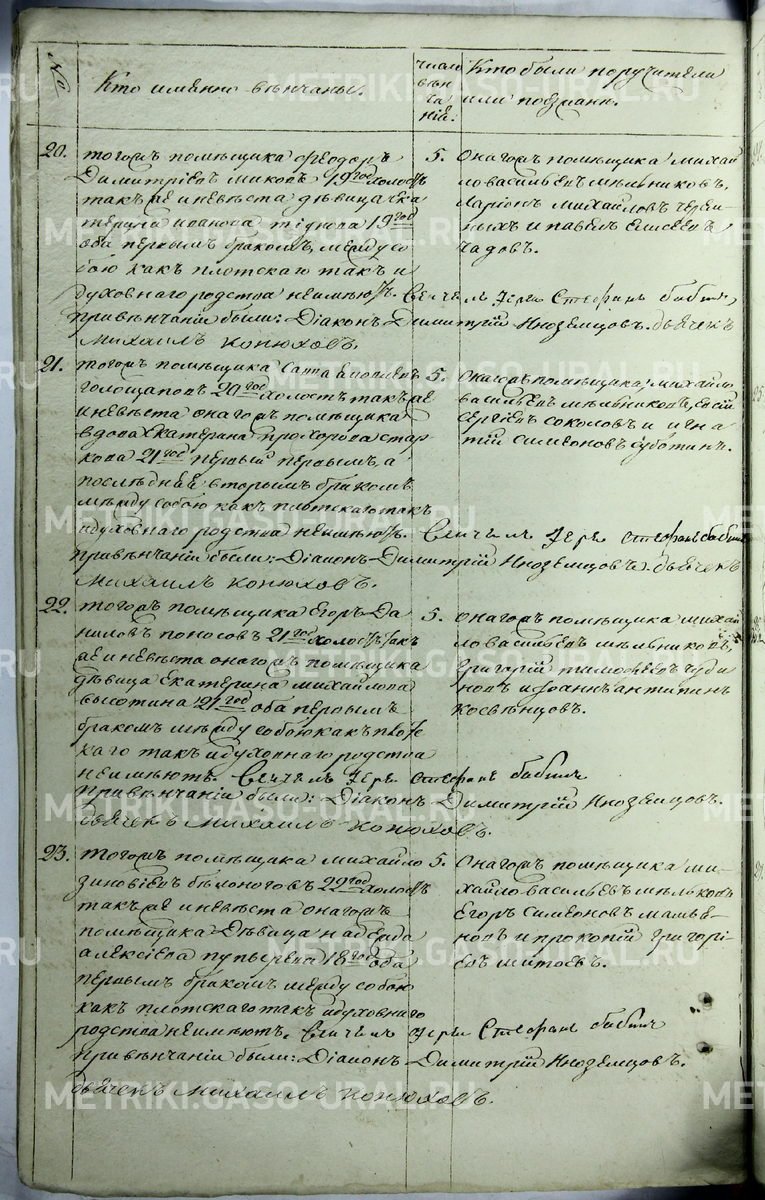 №
Кто именно вѣнчаны.
число вѣнчанія.
Кто были поручители или поезжане.
20.
тогожъ помѣщика Ѳеодоръ
Димитріевъ миковъ 19 год холостъ
такъ же и невѣста дѣвица Ека
терина иванова 19 год
оба первымъ бракомъ, между со
бою какъ плотскаго такъ и
духовнаго родства неимѣютъ. Венчалъ Іерей Стефанъ бабинъ,
привѣнчаніи были: Діаконъ Димитрій Иноземцовъ. дьячекъ
Михаилъ конюховъ.
5.
Онагожъ помѣщика михай
ло васильевъ мѣльниковъ,
Ларіонъ михайловъ черем
ныхъ и павелъ Елисеевъ
чадовъ.
21.
тогожъ помѣщика Савва
голощаповъ 20 год холостъ такъ же
и невѣста онагожъ помѣщика
вдова Екатерина прохорова стар
кова 21 год первый первымъ, а
послѣдняя вторымъ бракомъ
между собою какъ плотскаго такъ
идуховнаго родства неимѣютъ. Венчалъ Іерей Стефанъ бабинъ
привѣнчаніи были: Діаконъ Димитрій Иноземцовъ. дьячекъ
Михаилъ конюховъ.
5.
Онагожъ помѣщика, михайло
васильевъ мѣльниковъ,
Сергіевъ соколовъ и игна
тій симеоновъ субботинъ.
22.
тогожъ помѣщика Егоръ Да
ниловъ поносовъ 21 год холостъ такъ
же и невѣста онагожъ помѣщика
дѣвица Екатерина михайлова
высотина 21 год оба первымъ
бракомъ между собою какъ плотс
каго такъ идуховнаго родства
неимѣютъ. Венчалъ Іерей Стефанъ бабинъ
привѣнчаніи были: Діаконъ Димитрій Иноземцовъ.
дьячекъ Михаилъ конюховъ.
5.
Онагожъ помѣщика михай
ло васильевъ мѣльниковъ,
григорій тимофеевъ чуди
новъ и Іоаннъ антипинъ
косвѣнцовъ.
23.
тогожъ помѣщика михайло
зиновіевъ бѣлоноговъ 22 год холостъ
такъ же и невѣста онагожъ
помѣщика дѣвица надежда
алексіева пупырева 18 год оба
первымъ бракомъ между собою
какъ плотскаго такъ идуховнаго
родства неимѣютъ. Венчалъ Іерей Стефанъ бабинъ
привѣнчаніи были: Діаконъ Димитрій Иноземцовъ.
дьячекъ Михаилъ конюховъ.
5.
Онагожъ помѣщика ми
хайло васильевъ мѣльниковъ
Егоръ Симеоновъ мамее
новъ и прокопій григорі
евъ шитоевъ.
METRIKI.GASO-URAL.RU